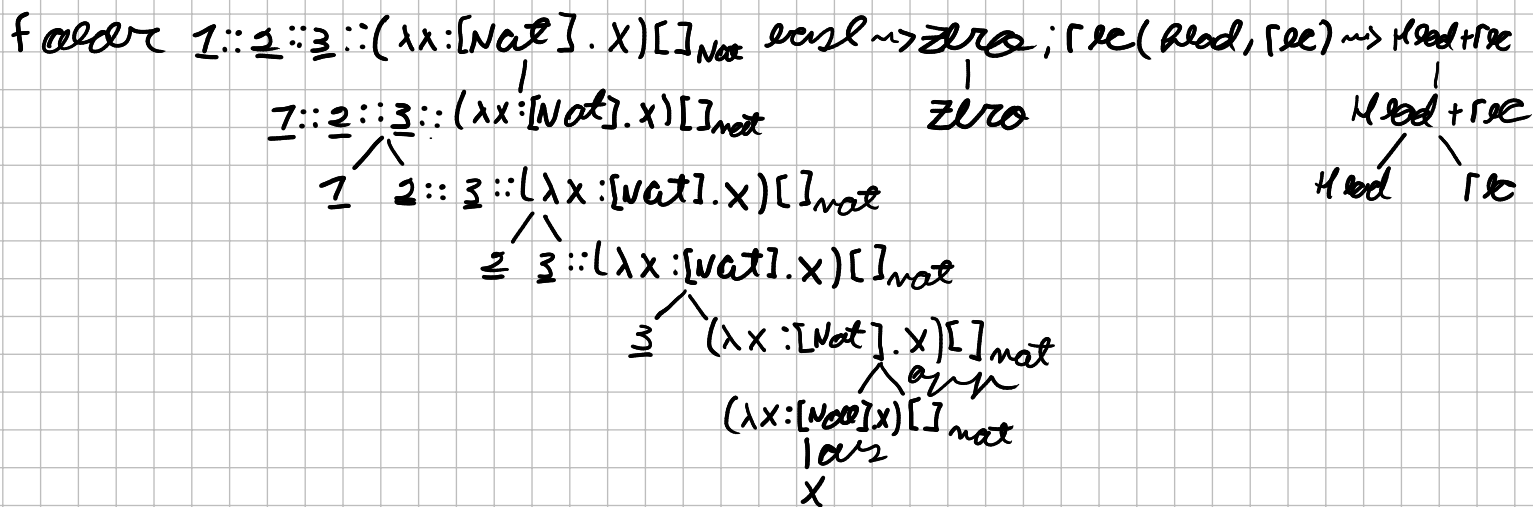 foldr 1::2::3::(λx:[Nat].x)[]Nat {empty ~> zero; rec(head, rec) ~> head+rec
1::2::3::(λx:[Nat].x)[]nat zero head+rec
1 2::3::(λx:[Nat].x)[]nat head rec
2 3::(λx:[Nat].x)[]nat
3 (λx:[Nat].x)[]nat
app
(λx:[Nat].x)[]nat
x